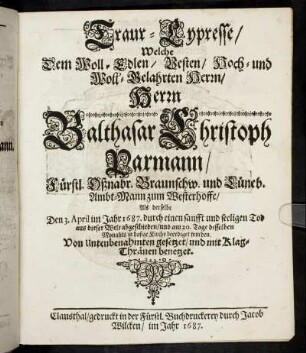 Traur-Cypresse/
Welche
Dem Woll-Edlen/ Vesten/ Hoch- und
Woll-Gelahrten Herrn/
Herrn
Balthasar Christoph
Parmann/
Fürstl. Oßnabr. Braunschw. und Lüneb.
Ambt-Mann zum Westerhoffe/
Als derselbe
Den 3. April im Jahr 1687. durch einen sanfft und seeligen Tod
aus dieser Welt abgeschieden/ und am 20. Tage desselben
Monahts in dasiger Kirche beerdiget worden.
Von Untenbenahmten gesetzet/ und mit Klag-
Thränen benetzet.
Clausthal/ gedruckt in der Fürstl. Buchdruckerey durch Jacob
Wilcken/ im Jahr 1687.